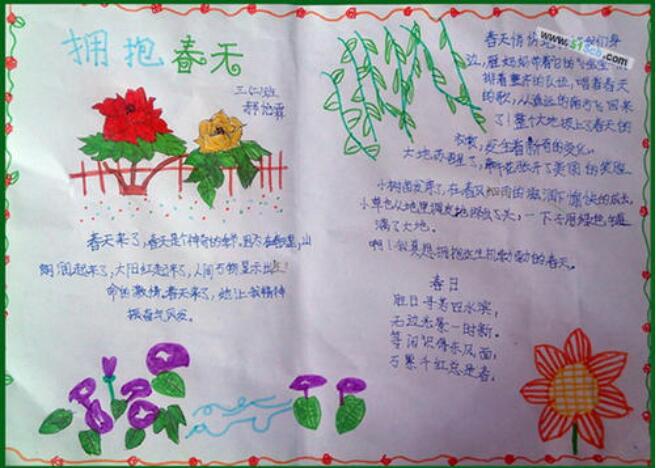 拥抱春天
三(二)班
郝怡霖
春天来了,春天是个神奇的季节,
润起来了,太阳红起来了,人间万物显示出生
命的激情。春天来了,她让我精神
振奋气风发。
春天悄悄地 我们身
边,雁妈妈带着它的
排着整齐的队伍,唱着春天
的歌,从遥远的南方飞回来
了!整个大地披上了春天的
衣裳,发生着新奇的变化。
大地苏醒了,鲜花张开了美丽的笑脸
小树发芽了,在春风和雨的滋润下愉快的成长,
小草也从地里 了头,一下子用绿色
满了大地。
啊!我真想拥抱这生机勃勃的春天。
春日
胜日寻芳四水滨,
无边光景一时新。
等闲识得东风面,
万紫千红总是春。
www.51scb.com